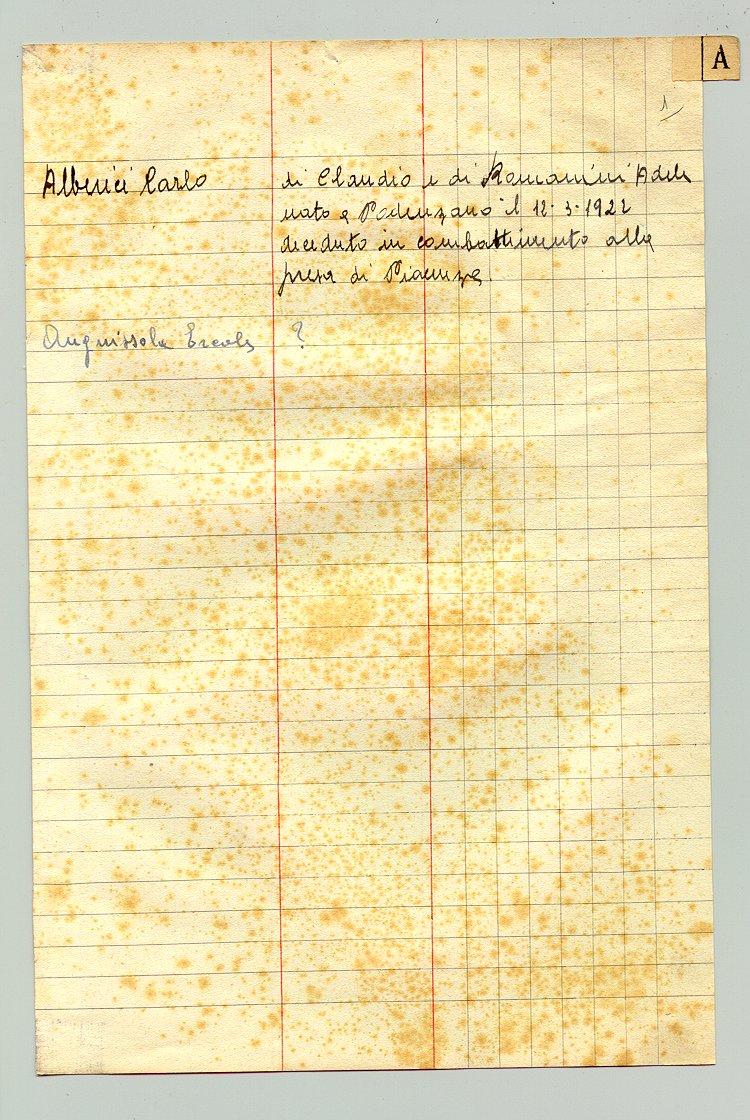 A
1
Alberici Carlo di Claudio e di Romanini Adele
nato a Podenzano il 12-3-1922
deceduto in combattimento alla
presa di Piacenza.
Anguissola Ercole ?